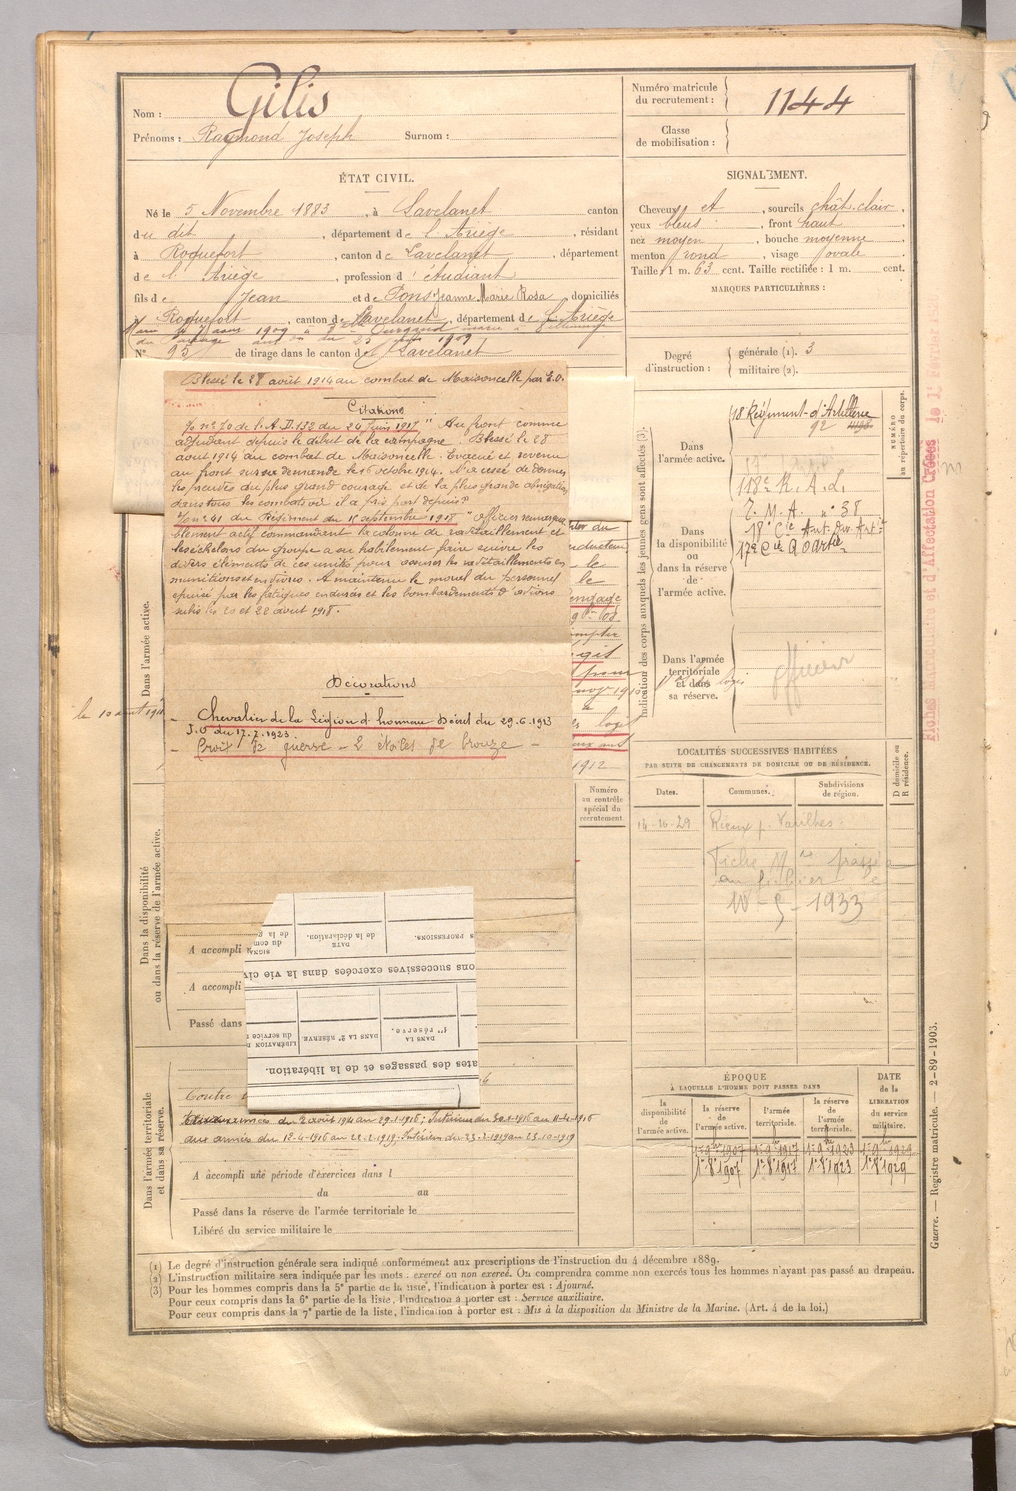 Nom : Gilis
Prénoms : Raymond Joseph Surnom :
Numéro matricule du recrutement : 1144
Classe de mobilisation :
ÉTAT CIVIL.
Né le 5 Novembre 1883, à Lavelanet canton
du dit, département de l'Ariège, résidant
à Roquefort, canton de Lavelanet, département
de l'Ariège, profession d'étudiant
fils de Jean et de Pons Jeanne Marie Rosa domiciliés
à Roquefort, canton de Lavelanet, département de l'Ariège
N° 95 de tirage dans le canton de Lavelanet
SIGNALEMENT.
Cheveux et, sourcils chât. clair,
yeux bleus, front haut
nez moyen, bouche moyenne
menton rond, visage ovale
Taille : 1 m. 63 cent. Taille rectifiée : 1 m. cent.
MARQUES PARTICULIÈRES :
Degré d'instruction : générale (1). 3
militaire (2).
Blessé le 28 août 1914 au combat de Maisoncelle par E.O.
Citations
O/ n° 70 de l'A.D. 132 du 24 Juin 1917 " Au front comme
adjudant depuis le début de la campagne. Blessé le 28
août 1914 au combat de Maisoncelle. Evacué et revenu
au front sur sa demande le 16 octobre 1914. N'a cessé de donner
les preuves du plus grand courage et de la plus grande abnégation
dans tous les combats où il a pris part depuis "
O/ n° 41 du Régiment du 15 septembre 1918 " officier remarqua-
blement actif commandant la colonne de ravitaillement et
les échelons du groupe a su habilement faire suivre les
divers éléments de ces unités pour assurer les ravitaillements en
munitions et en vivres. A maintenu le moral du personnel
épuisé par les fatigues endurées et les bombardements d'avions
subis les 20 et 22 août 1918.
Décorations
- Chevalier de la Légion d'honneur Décret du 29.6.1923
J.O du 17.7.1923
- Croix de guerre - 2 étoiles de bronze -
le 10 août 191
engagé
1912
Indication des corps auxquels les jeunes gens sont affectés (3).
NUMÉRO au répertoire du corps.
Dans l'armée active.
18 Régiment d'Artillerie
92
Dans la disponibilité ou dans la réserve de l'armée active.
118e R. A. L.
T. M. A. n° 38
18e Cie Aut.
17e Cie
Dans l'armée territoriale et dans sa réserve.
officier
LOCALITÉS SUCCESSIVES HABITÉES
PAR SUITE DE CHANGEMENTS DE DOMICILE OU DE RÉSIDENCE.
Dates. Communes. Subdivisions de région. D domicile ou R résidence.
14-10-29 Rieux p. Varilhes
Fiche Mle passée
au fichier le
10-5-1933
Numéro au contrôle spécial du recrutement.
Dans l'armée active.
Dans la disponibilité ou dans la réserve de l'armée active.
A accompli
A accompli
Passé dans
PROFESSIONS.
DATE de la déclaration.
ons successives exercées dans la vie civ
DANS LA 1re réserve.
DANS LA 2e RÉSERVE.
LIBÉRATION du service
ates des passages et de la libération.
Dans l'armée territoriale et dans sa réserve.
Contre
aux armées du 2 août 1914 au 29-1-1916; Intérieur du 30-1-1916 au 11-4-1916
aux armées du 12-4-1916 au 22-2-1919; Intérieur du 23-2-1919 au 23-10-1919
A accompli une période d'exercices dans l
du au
Passé dans la réserve de l'armée territoriale le
Libéré du service militaire le
ÉPOQUE
À LAQUELLE L'HOMME DOIT PASSER DANS
DATE de la LIBÉRATION du service militaire.
la disponibilité de l'armée active. la réserve de l'armée active. l'armée territoriale. la réserve de l'armée territoriale.
1er 9bre 1907 1er 9bre 1917 1er 9bre 1923 1er 9bre 1929
1er 8bre 1907 1er 8bre 1917 1er 8bre 1923 1er 8bre 1929
(1) Le degré d'instruction générale sera indiqué conformément aux prescriptions de l'instruction du 4 décembre 1889.
(2) L'instruction militaire sera indiquée par les mots : exercé ou non exercé. On comprendra comme non exercés tous les hommes n'ayant pas passé au drapeau.
(3) Pour les hommes compris dans la 5e partie de la liste, l'indication à porter est : Ajourné.
Pour ceux compris dans la 6e partie de la liste, l'indication à porter est : Service auxiliaire.
Pour ceux compris dans la 7e partie de la liste, l'indication à porter est : Mis à la disposition du Ministre de la Marine. (Art. 4 de la loi.)
Guerre. — Registre matricule. — 2-89-1903.
Fiches et d'Affectation Créées le 1er Février